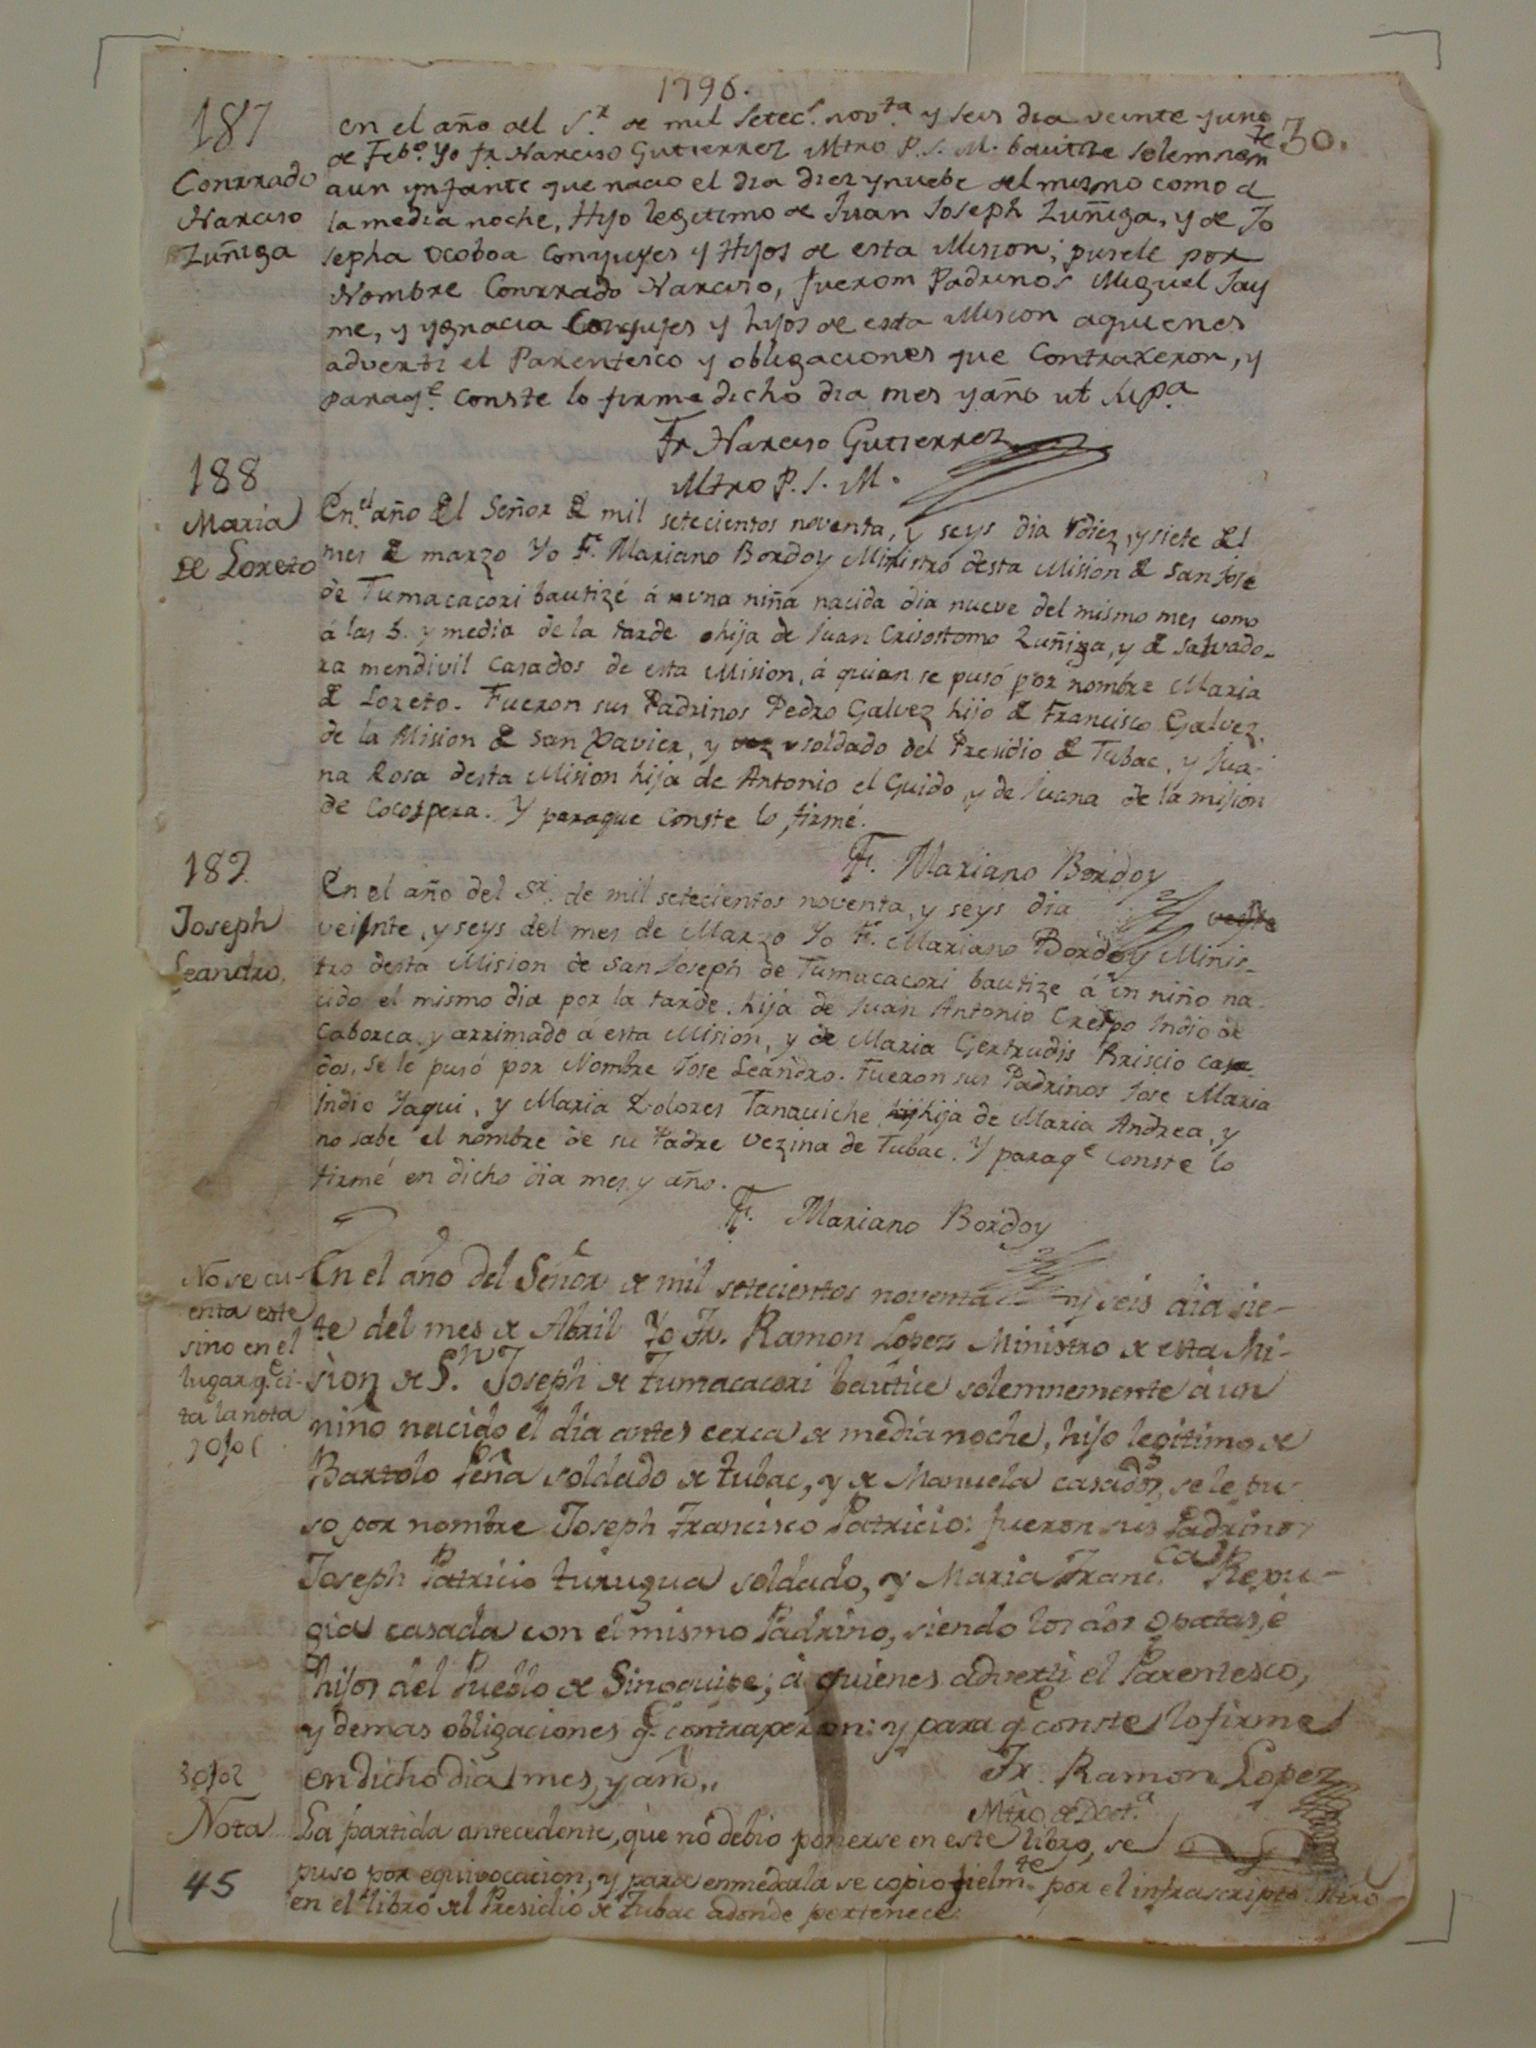 1796.
30.
187
Conrrado
Narciso
Zuñiga
en el año del S.r de mil Setec.s nov.ta y seis dia veinte yuno
de Feb.o Yo fr Narciso Gutierrez Mtro P. S. M. bautize solemnem te
aun ynfante que nacio el dia diez ynuebe del mismo como a
la media noche, Hijo legitimo de Juan Joseph Zuñiga, y de Jo
sepha ocoboa Conyujes y Hijos de esta Mision; pusele por
Nombre Conrrado Narciso, fuerom Padrinos Miguel Jay
me, y ygnacia Conyujes y hijos de esta Mision aquienes
adverti el Parentesco y obligaciones que Contraxeron, y
paraq.e Conste lo firme dicho dia mes yaño ut supa
Fr Narciso Gutierrez
Mtro P. S. M.
188
Maria
de Loreto
En el año del Señor de mil setecientos noventa, y seys dia diez, y siete del
mes de marzo Yo Fr. Mariano Bordoy Ministro desta Mision de San José
de Tumacacori bautizé á una niña nacida dia nueve del mismo mes como
á las 5. y media de la tarde hija de Juan Crisostomo Zuñiga, y de Salvado-
ra mendivil casados de esta Mision, á quien se pusó por nombre Maria
de Loreto. Fueron sus Padrinos Pedro Galvez hijo de Francisco Galvez
de la Mision de San Xavier, y soldado del Presidio de Tubac, y Jua-
na Rosa desta Mision hija de Antonio el Guido, y de Juana de la mision
de Cocospera. Y paraque conste lo firmé.
F. Mariano Bordoy
189.
Joseph
Leandro.
En el año del Sr. de mil setecientos noventa, y seys dia
veinte, y seys del mes de Marzo Yo Fr. Mariano Bordoy Minis-
tro desta Mision de San Joseph de Tumacacori bautize á un niño na-
cido el mismo dia por la tarde. hija de Juan Antonio Crespo Indio de
Caborca, y arrimado á esta Mision, y de Maria Gertrudis Briscio casa-
dos, se le pusó por Nombre Jose Leandro. Fueron sus Padrinos Jose Maria
Indio Yaqui, y Maria Dolores Tanauiche hija de Maria Andrea, y
no sabe el nombre de su Padre vezina de Tubac. Y paraq.e conste lo
firmé en dicho dia mes y año.
F. Mariano Bordoy
No se cu-
enta este
sino en el
lugar q.e ci-
ta la nota
En el año del Señor de mil setecientos noventa y seis dia sie-
te del mes de Abril Yo Fr. Ramon Lopez Ministro de esta Mi-
sion de S.n Joseph de Tumacacori bautice solemnemente á un
niño nacido el dia antes cerca de media noche, hijo legitimo de
Bartolo Peña soldado de Tubac, y de Manuela casados, se le pu-
so por nombre Joseph Francisco Patricio: fueron sus Padrinos
Joseph Patricio turugua soldado, y Maria Franc.ca Repu-
gia casada con el mismo Padrino, siendo los dos opatas, é
hijos del Pueblo de Sinoquipe; á quienes adverti el Parentesco,
y demas obligaciones q.e contraxeron: y para q.e conste lo firme
en dicho dia, mes, y año.
Fr. Ramon Lopez
Mtro. de Doct.a
Nota
La partida antecedente, que nó debio ponerse en este libro, se
puso por equivocacion, y para enmedarla se copio fielm.te por el infrascripto Mtro
en el libro del Presidio de Tubac adonde pertenece.
45